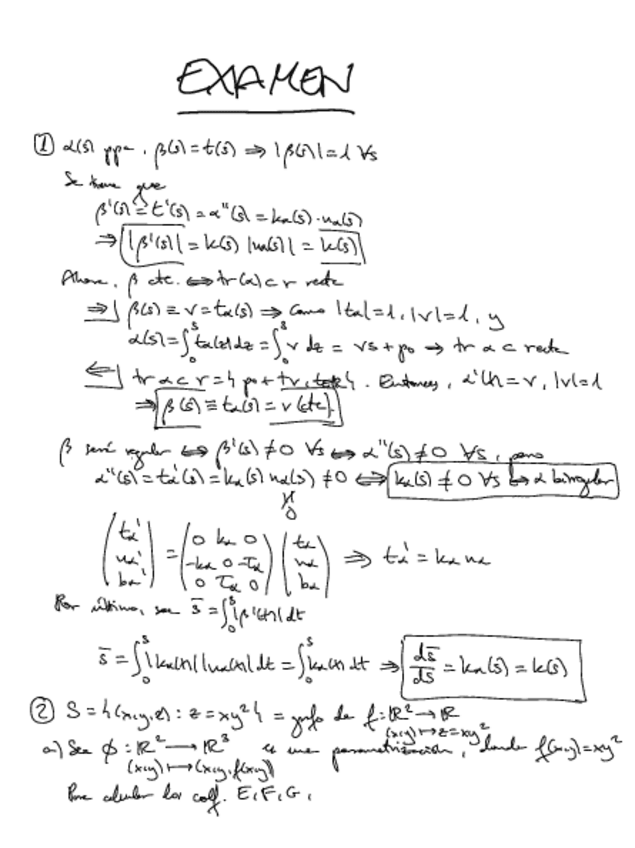 EXAMEN
① α(s) ppa, β(s)=t(s) ⇒ |β(s)|=1 ∀s
Se tiene que
β'(s)=t'(s)=α''(s)=kα(s)·nα(s)
⇒ |β'(s)|=k(s) |n(s)|=k(s)
Ahora, β cte. ⇔ tr(α)⊂r recta
⇒| β(s)≡v=tα(s) ⇒ Como |tα|=1, |v|=1, y
α(s)=∫₀ˢ tα(z)dz=∫₀ˢ v dz = vs+p₀ → tr α ⊂ recta
⇐| tr α⊂r={p₀+tv, t∈ℝ}. Entonces, α'(t)=v, |v|=1
⇒ β(s)≡tα(s)=v (cte).
β será regular ⇔ β'(s)≠0 ∀s ⇔ α''(s)≠0 ∀s, pero
α''(s)=tα'(s)=kα(s)nα(s)≠0 ⇔ kα(s)≠0 ∀s ⇔ α birregular
≠
0
(tα' nα' bα') = (0 kα 0 / -kα 0 -τα / 0 τα 0) (tα nα bα) ⇒ tα'=kα nα
Por último, sea s̄=∫₀ˢ|β'(t)|dt
s̄=∫₀ˢ|kα(t)||nα(t)|dt=∫₀ˢkα(t)dt ⇒ ds̄/ds=kα(s)=k(s)
② S={(x,y,z): z=xy²}= grafo de f:ℝ²→ℝ
(x,y)↦z=xy²
a) Sea ϕ:ℝ²→ℝ³ es una parametrización, donde f(x,y)=xy²
(x,y)↦(x,y,f(x,y))
Para calcular los coef. E,F,G,